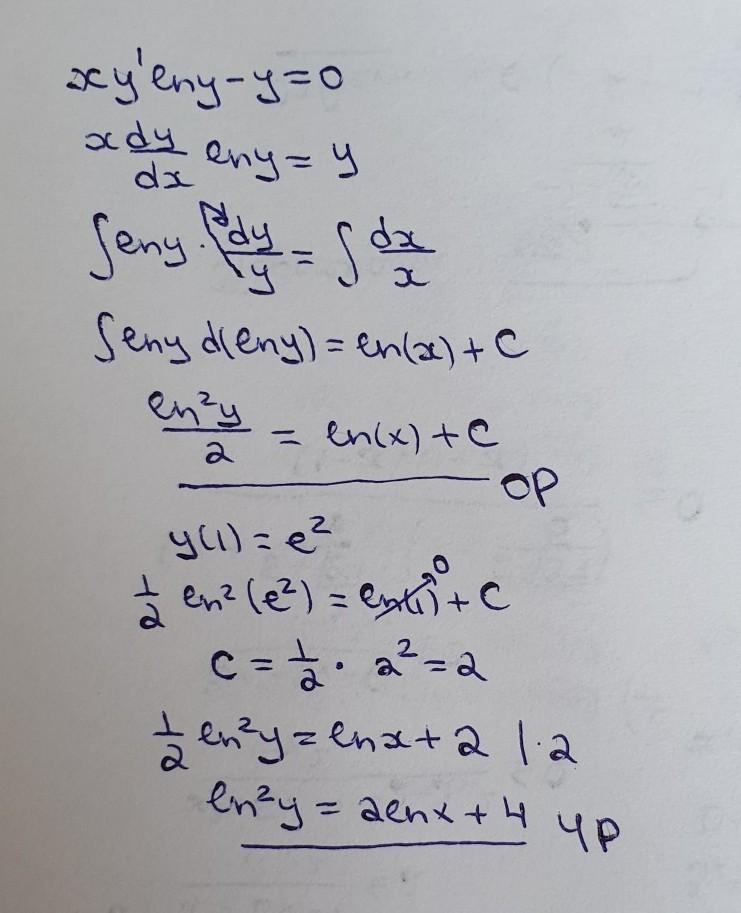 xy'lny-y=0
x dy/dx lny = y
∫lny · dy/y = ∫ dx/x
∫lny d(lny) = ln(x) + C
ln²y/2 = ln(x) + C
OP
y(1) = e²
1/2 ln²(e²) = ln(1) + C 0
C = 1/2 · 2² = 2
1/2 ln²y = lnx + 2 | ·2
ln²y = 2lnx + 4 ЧР